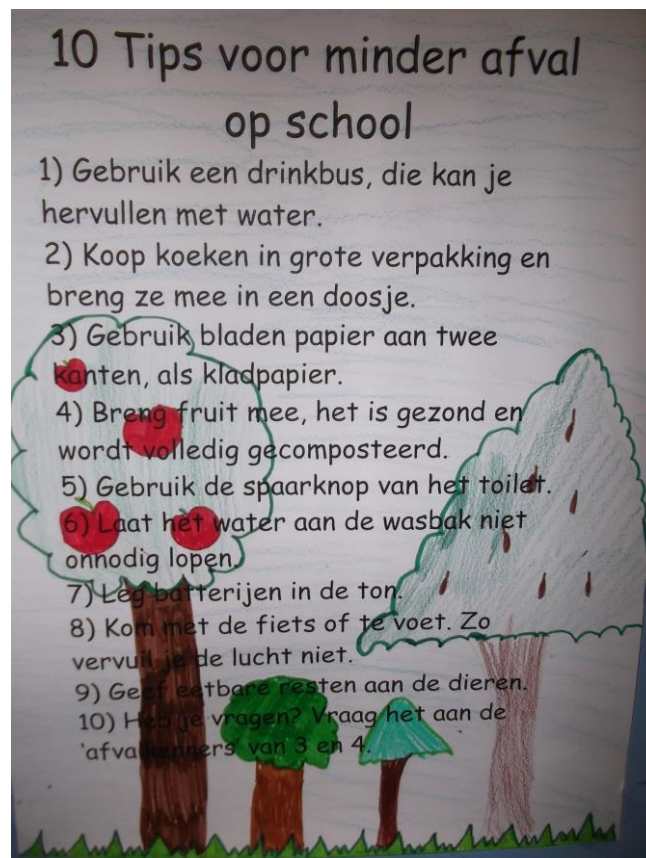 10 Tips voor minder afval
op school
1) Gebruik een drinkbus, die kan je
hervullen met water.
2) Koop koeken in grote verpakking en
breng ze mee in een doosje.
3) Gebruik bladen papier aan twee
kanten, als kladpapier.
4) Breng fruit mee, het is gezond en
wordt volledig gecomposteerd.
5) Gebruik de spaarknop van het toilet.
6) Laat het water aan de wasbak niet
onnodig lopen.
7) Leg batterijen in de ton.
8) Kom met de fiets of te voet. Zo
vervuil je de lucht niet.
9) Geef eetbare resten aan de dieren.
10) Heb je vragen? Vraag het aan de
'afvalkenners' van 3 en 4.